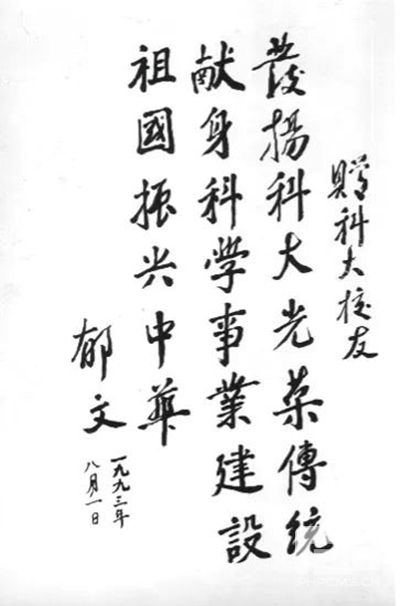 赠科大校友
發揚科大光荣傳统
献身科学事業建設
祖國振兴中華
郁文
一九九三年
八月一日
PHPCMS.CN